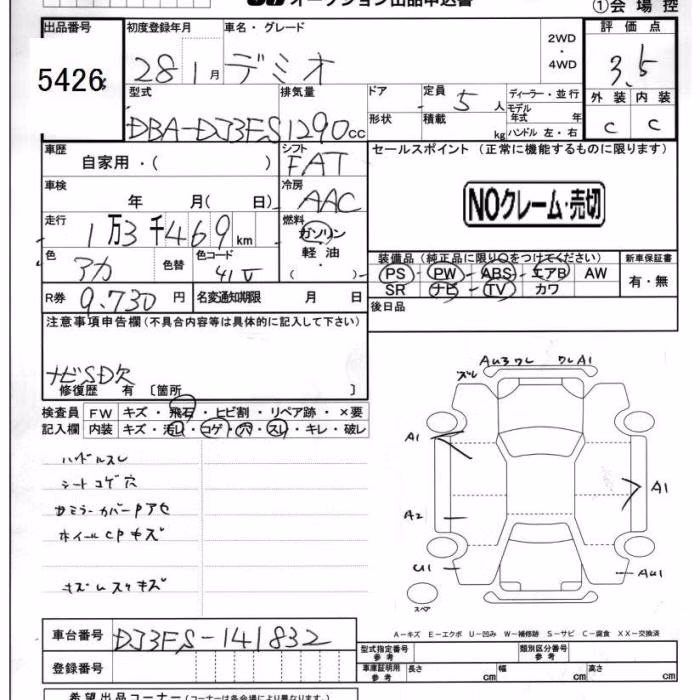 オークション出品申込書
①会場控
出品番号
5426
初度登録年月
28 1月
車名・グレード
デミオ
2WD
・
4WD
評価点
3.5
型式
DBA-DJ3FS
排気量
1290cc
ドア
形状
定員
5人
積載
kg
ディーラー・並行
モデル
年式 年
ハンドル 左・右
外装 内装
C C
車歴
自家用・( )
シフト
FAT
セールスポイント (正常に機能するものに限ります)
車検
年 月( 日)
冷房
AAC
NOクレーム・売切
走行
1万3千469km
燃料
ガソリン
・
軽油
( )
色
アカ
色替
色コード
41V
装備品 (純正品に限り○をつけてください)
PS・PW・ABS・エアB AW
SR ナビ・TV カワ
新車保証書
有・無
R券 9,730円
名変通知期限 月 日
後日品
注意事項申告欄 (不具合内容等は具体的に記入して下さい)
ナビSD欠
修復歴 有 〔箇所 〕
検査員
記入欄
FW キズ・飛石・ヒビ割・リペア跡・×要
内装 キズ・汚レ・コゲ・穴・スレ・キレ・破レ
ハンドルスレ
シートコゲ穴
ホイールCPキズ
ズレ
AU3ワレ
ワレA1
A1
A1
A2
U1
AU1
スペア
A-キズ E-エクボ U-凹み W-補修跡 S-サビ C-腐食 XX-交換済
車台番号 DJ3FS-141832
登録番号
型式指定番号
参考
類別区分番号
参考
車庫証明用
参考
長さ cm
幅 cm
高さ cm
希望出品コーナー (コーナーは各会場により異なります。)